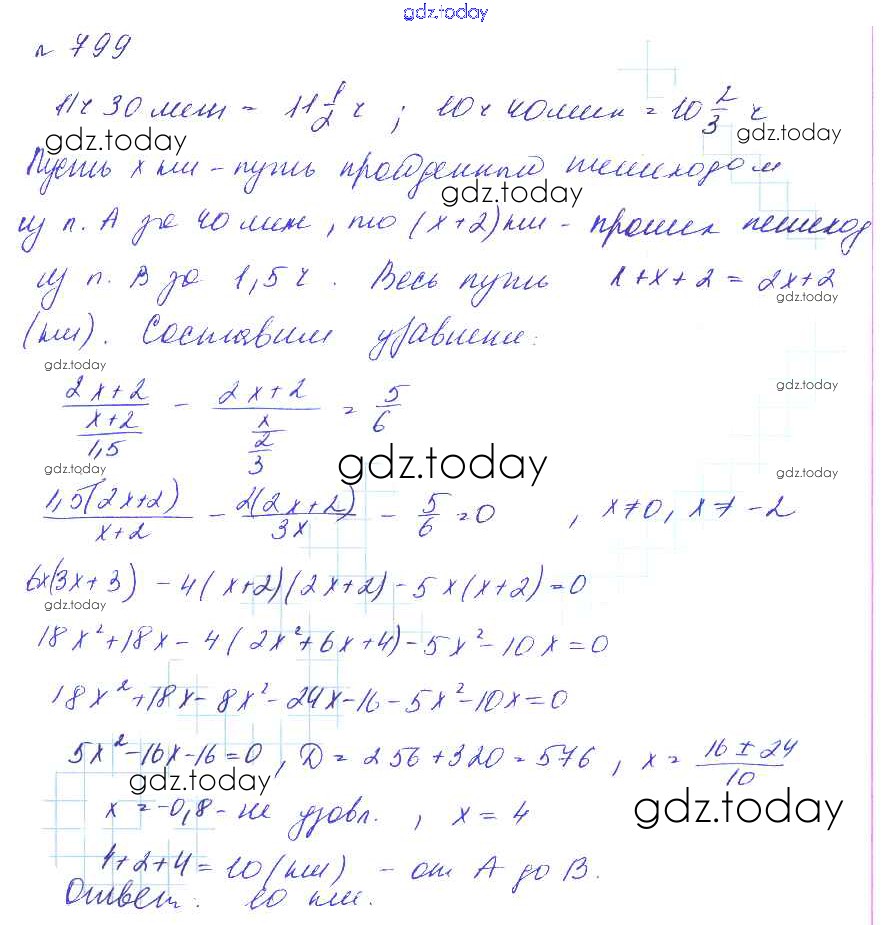 gdz.today
№ 799
11 ч 30 мин = 11 1/2 ч ; 10 ч 40 мин = 10 2/3 ч
gdz.today gdz.today
Пусть x км – путь пройденный пешеходом
gdz.today
из п. А за 40 мин, то (x+2) км – прошел пешеход
из п. В за 1,5 ч. Весь путь x+x+2 = 2x+2
gdz.today
(км). Составим уравнение:
gdz.today gdz.today
(2x+2)/((x+2)/1,5) – (2x+2)/(x/(2/3)) = 5/6
gdz.today
gdz.today gdz.today
1,5(2x+2)/(x+2) – 2(2x+2)/(3x) – 5/6 = 0 , x≠0, x≠ -2
6x(3x+3) – 4(x+2)(2x+2) – 5x(x+2) = 0
gdz.today
18x²+18x – 4(2x²+6x+4) – 5x² – 10x = 0
18x²+18x – 8x² – 24x – 16 – 5x² – 10x = 0
5x² – 16x – 16 = 0 , D = 256+320 = 576 , x = (16 ± 24)/10
gdz.today gdz.today
x = -0,8 – не удовл. , x = 4
4+2+4 = 10 (км) – от А до В.
Ответ: 10 км.